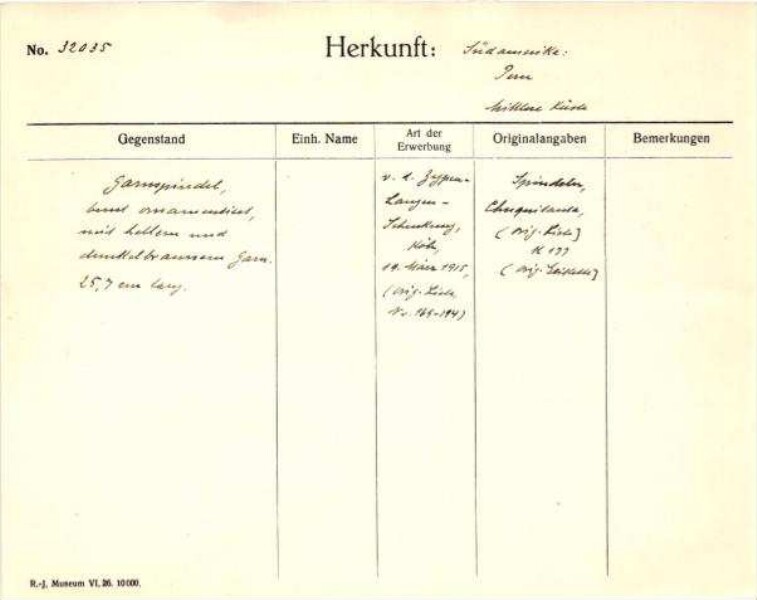 No. 32035
Herkunft: Südamerika:
Peru
Mittlere Küste
Gegenstand
Einh. Name
Art der
Erwerbung
Originalangaben
Bemerkungen
Garnspindel,
bunt ornamentiert,
mit hellem und
dunkelbraunem Garn.
25,7 cm lang.
v. d. Zypen-
Langen-
Schenkung,
Köln,
19. März 1915,
(Orig. Liste
No. 169-194)
Spindeln,
Chuquitanta,
(Orig. Liste)
K 177
(Orig. Etikette)
R.-J. Museum VI. 26. 10000.